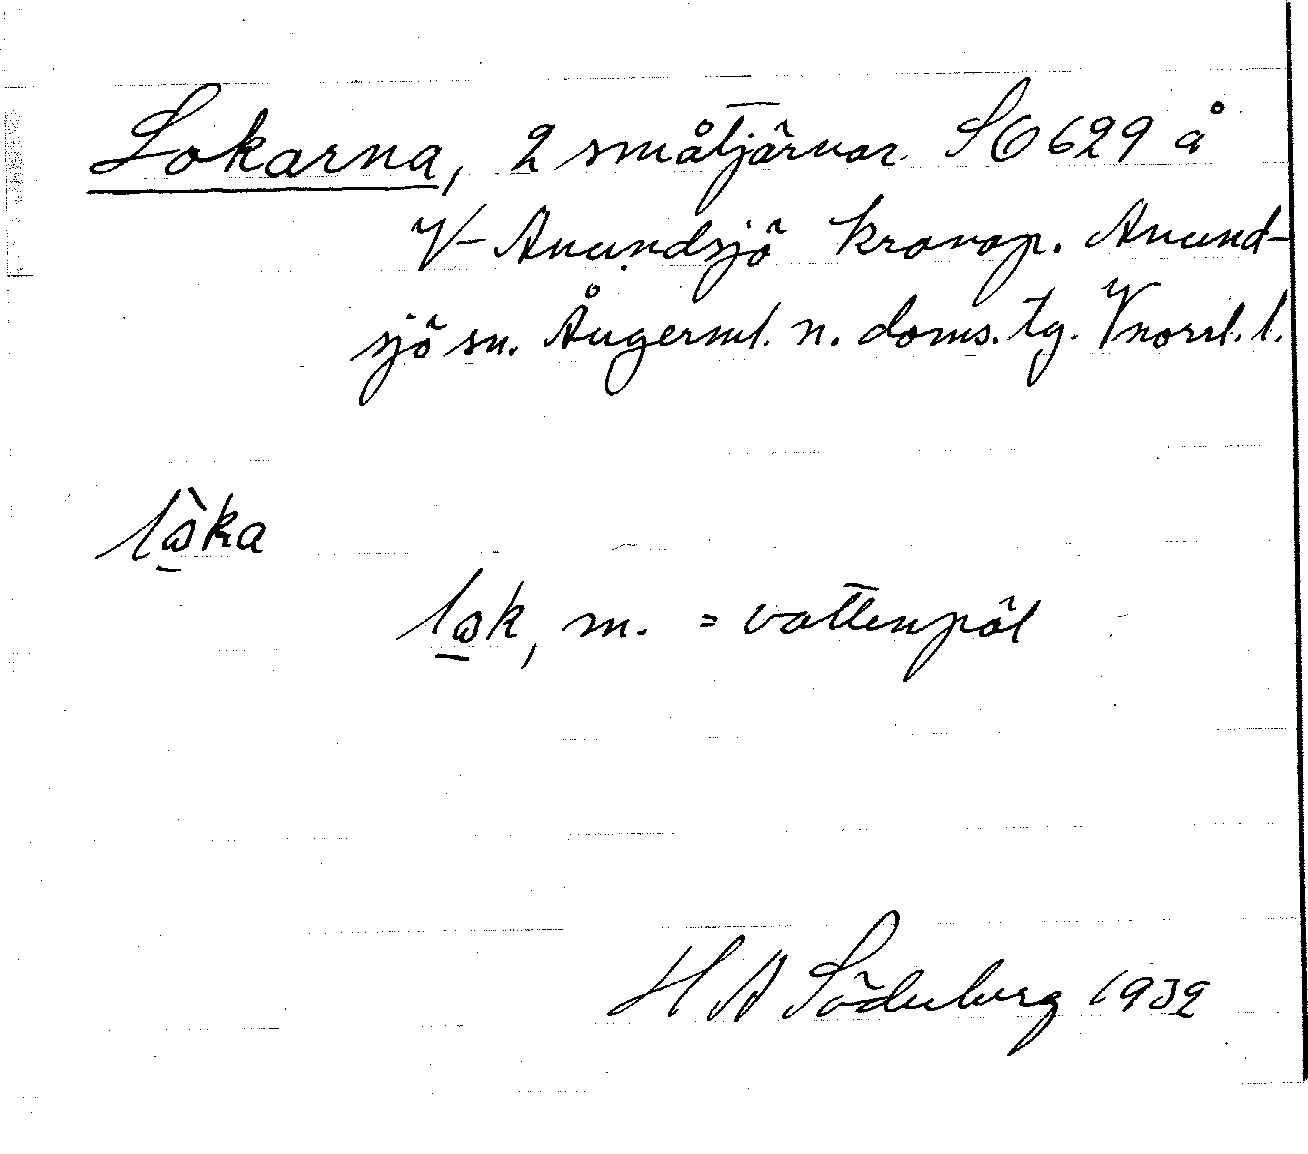 Lokarna, 2 småtjärnar SO 629 å
V- Anundsjö kronop. Anund-
sjö sn. Ångerml. n. doms. tg. Vnorrl. l.
lὼ̲ka
lω̲k, m. = vattenpöl
H A Söderberg 1932